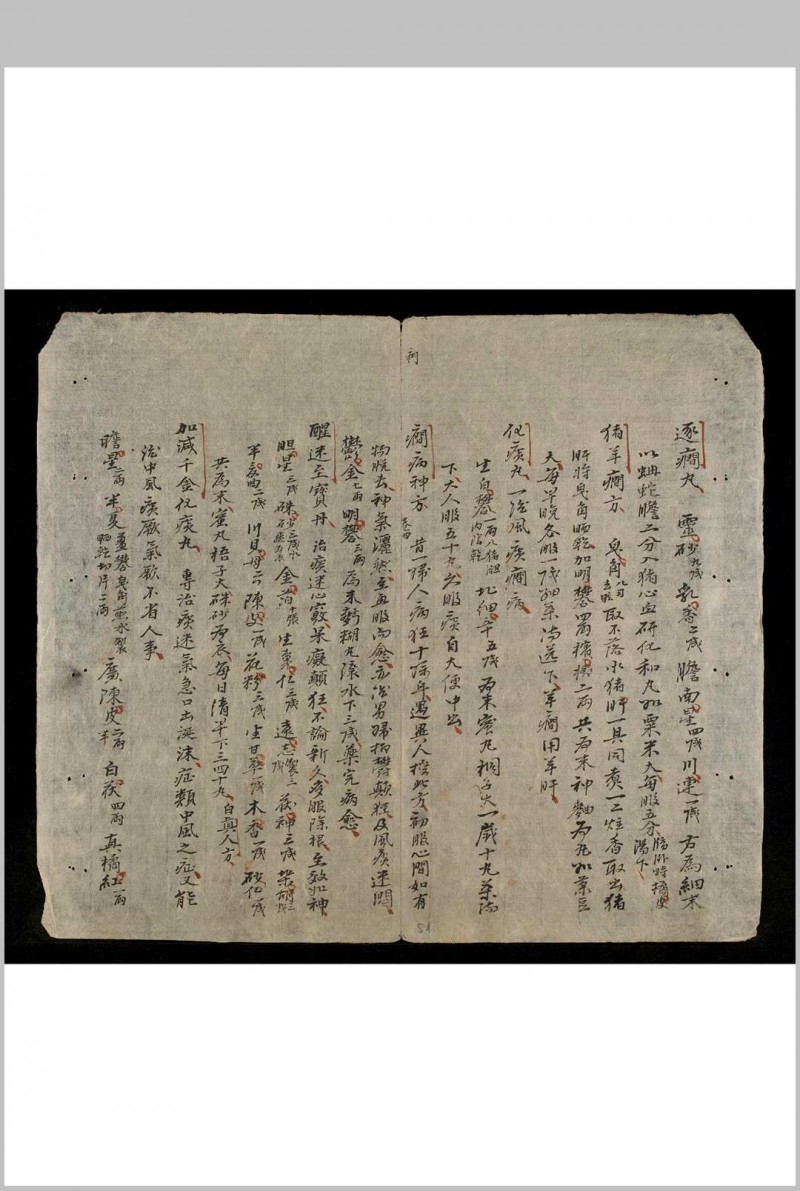 逐癇丸 靈砂九戔 乳香二戔 膽南星四戔 川連一戔 右為細末
以蚺蛇膽二分入猪心血研化和丸如粟米大每服五分 臨卧時橘皮湯下
猪羊癇方 皂角 取不落水猪肝一具同煑一二炷香取出猪
肝將皂角晒乾加明礬四兩 二兩共為末神麯為丸如菉豆
大每早晚各服一戔細茶湯送下羊癇用羊肝
化痰丸 一治風痰癇病
生白礬一兩 細辛五戔 為末蜜丸桐子大一歲十九茶湯
下大人服五十丸久服痰自大便中出
癇病神方 昔一婦人病狂十餘年遇異人授此方初服心間如有
物脫去神氣灑然至再服而愈亦治男婦 鬱顛狂及風痰迷悶
鬱金七兩 明礬三兩 為末麪糊丸滾水下三戔藥完病愈
醒迷至寶丹 治痰迷心竅呆癡顛狂不論新久多服除根至效如神
胆星三戔 硃砂三戔 金箔十張 生棗仁三戔 遠志 茯神三戔 柴胡
半夏曲二戔 川貝母二戔 陳皮一戔 花粉三戔 生甘草一戔 木香一戔 砂仁一戔
共為末蜜丸梧子大硃砂為衣每日清早下三四十丸 白眞人方
加減千金化痰丸 專治痰迷氣急口出涎沫症類中風之症又能
治中風痰厥氣厥不省人事
膽星二兩 半夏 薑礬皂角煎水製晒乾切片二兩 廣陳皮 白茯四兩 真橘紅一兩